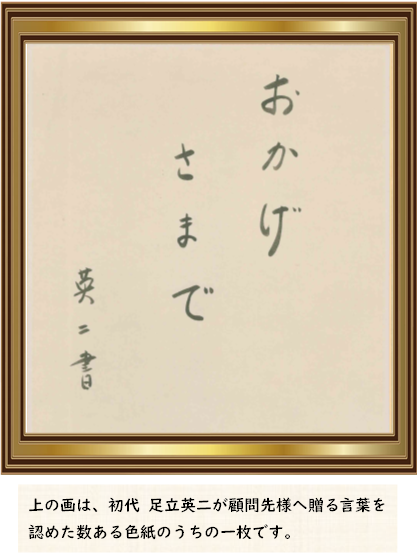 おかげ
さまで
英二書
上の画は、初代 足立英二が顧問先様へ贈る言葉を
認めた数ある色紙のうちの一枚です。